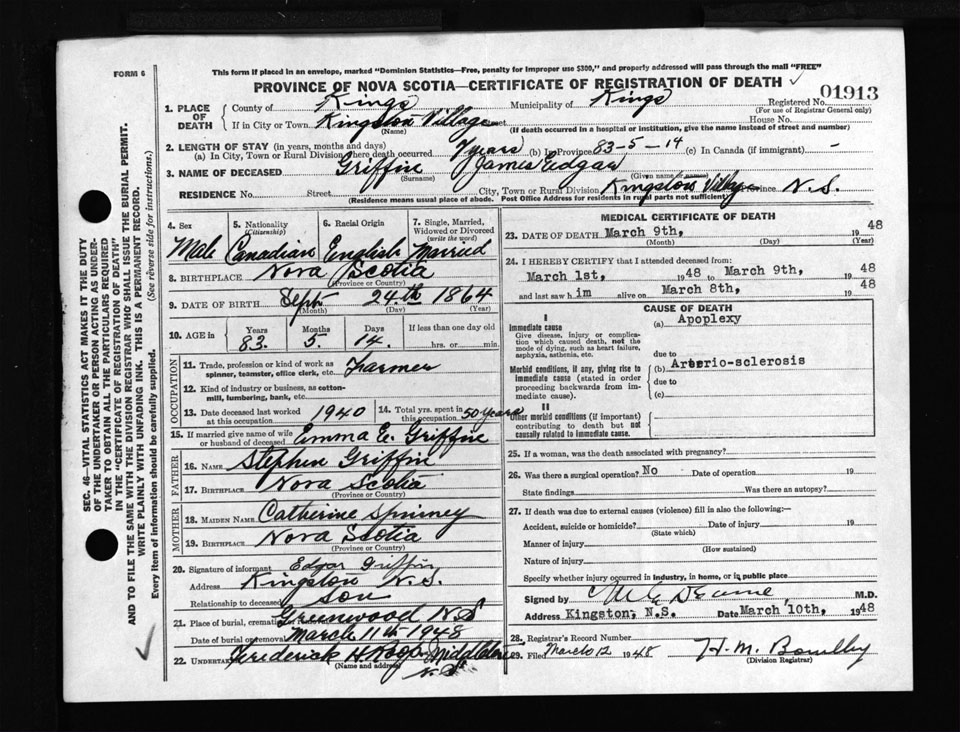 FORM 6
This form if placed in an envelope, marked "Dominion Statistics—Free, penalty for improper use $300," and properly addressed will pass through the mail "FREE"
PROVINCE OF NOVA SCOTIA—CERTIFICATE OF REGISTRATION OF DEATH
01913
1. PLACE OF DEATH
County of Kings Municipality of Kings Registered No.
(For use of Registrar General only)
If in City or Town Kingston Village Street House No.
(Name) (If death occurred in a hospital or institution, give the name instead of street and number)
2. LENGTH OF STAY (in years, months and days)
(a) In City, Town or Rural Division where death occurred 7 years (b) In Province 83-5-14 (c) In Canada (if immigrant) -
3. NAME OF DECEASED Griffin James Edgar
(Surname) (Given name or names)
RESIDENCE No. Street City, Town or Rural Division Kingston Village Province N.S.
(Residence means usual place of abode. Post Office Address for residents in rural parts not sufficient)
4. Sex Male
5. Nationality (Citizenship) Canadian
6. Racial Origin English
7. Single, Married, Widowed or Divorced (write the word) Married
8. BIRTHPLACE Nova Scotia
(Province or Country)
9. DATE OF BIRTH Sept 24th 1864
(Month) (Day) (Year)
10. AGE in Years 83 Months 5 Days 14 If less than one day old hrs. or min.
OCCUPATION
11. Trade, profession or kind of work as spinner, teamster, office clerk, etc. Farmer
12. Kind of industry or business, as cotton-mill, lumbering, bank, etc.
13. Date deceased last worked at this occupation 1940
14. Total yrs. spent in this occupation 50 years
15. If married give name of wife or husband of deceased Emma E. Griffin
FATHER
16. NAME Stephen Griffin
17. BIRTHPLACE Nova Scotia
(Province or Country)
MOTHER
18. MAIDEN NAME Catherine Spinney
19. BIRTHPLACE Nova Scotia
(Province or Country)
20. Signature of informant Edgar Griffin
Address Kingston N.S.
Relationship to deceased Son
21. Place of burial, cremation Greenwood N.S
Date of burial or removal March 11th 1948
22. UNDERTAKER Frederick H.
(Name and address)
N.S.
MEDICAL CERTIFICATE OF DEATH
23. DATE OF DEATH March 9th, 19 48
(Month) (Day) (Year)
24. I HEREBY CERTIFY that I attended deceased from:
March 1st, 1948 to March 9th, 19 48
and last saw him alive on March 8th, 19 48
CAUSE OF DEATH
I
Immediate cause
Give disease, injury or complication which caused death, not the mode of dying, such as heart failure, asphyxia, asthenia, etc.
(a) Apoplexy
due to
Morbid conditions, if any, giving rise to immediate cause (stated in order proceeding backwards from immediate cause).
(b) Arterio-sclerosis
due to
(c)
II
Other morbid conditions (if important) contributing to death but not causally related to immediate cause.
25. If a woman, was the death associated with pregnancy?
26. Was there a surgical operation? No Date of operation 19
State findings Was there an autopsy?
27. If death was due to external causes (violence) fill in also the following:—
Accident, suicide or homicide? Date of injury 19
(State which)
Manner of injury
(How sustained)
Nature of injury
Specify whether injury occurred in industry, in home, or in public place
Signed by M.D.
Address Kingston, N.S. Date March 10th, 1948
28. Registrar's Record Number
29. Filed March 12 1948 H.M.
(Division Registrar)
SEC. 46—VITAL STATISTICS ACT MAKES IT THE DUTY
OF THE UNDERTAKER OR PERSON ACTING AS UNDER-
TAKER TO OBTAIN ALL THE PARTICULARS REQUIRED
IN THE "CERTIFICATE OF REGISTRATION OF DEATH"
AND TO FILE THE SAME WITH THE DIVISION REGISTRAR WHO SHALL ISSUE THE BURIAL PERMIT.
WRITE PLAINLY WITH UNFADING INK. THIS IS A PERMANENT RECORD.
Every item of information should be carefully supplied. (See reverse side for instructions.)